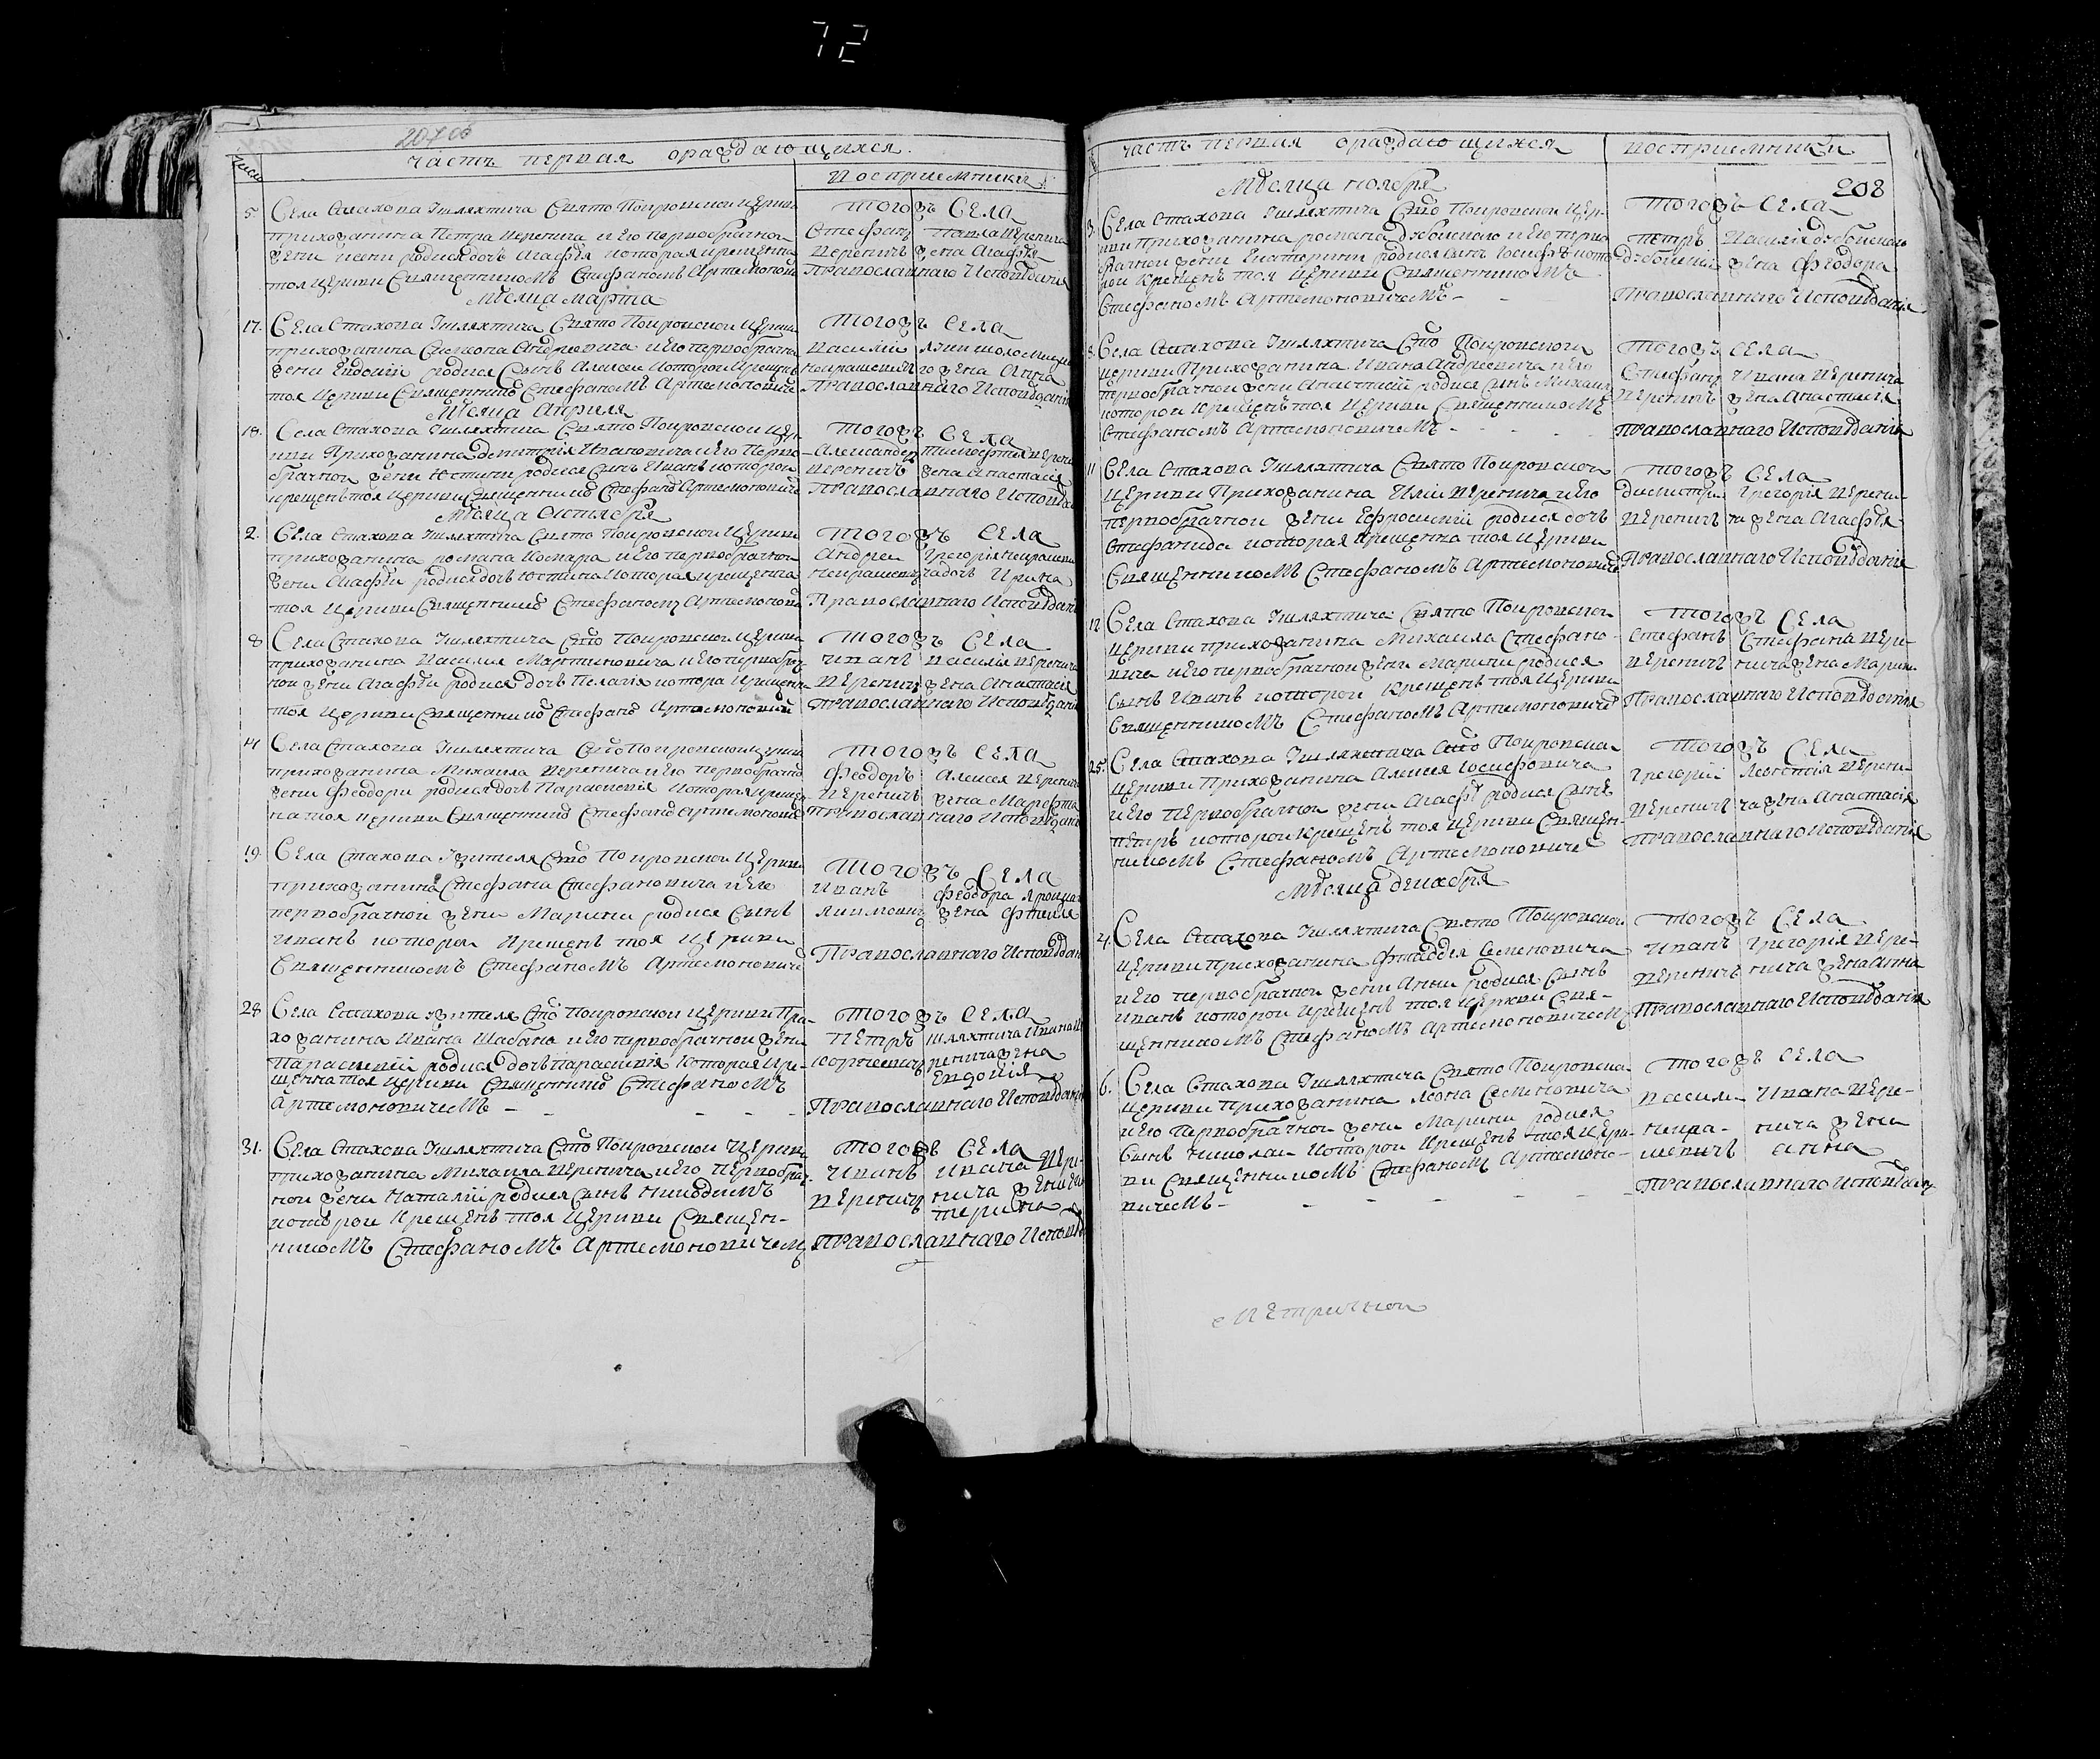 72
207 об
Число
Часть первая ораждающихся.
Восприемники
5 Села Стахова Шляхтича Свято Покровской Церкви
прихожанина Петра Веренича и Его первобрачной
родися дочь Агафїя которая крещенна
тоя Церкви Священникомъ Стефаномъ Артемонович
Тогожъ Села
Стефанъ Павла Веренича
Вереничъ жена Агафїя
Православнаго Исповѣданїя
Мѣсяца Марта
17. Села Стахова Шляхтича Свято Покровской Церкви
прихожанина Симеона Андреевича и Его первобрачной
жены Евдокїи родися Сынъ Алексеи которой Крещенъ
тоя Церкви Священнико Стефаномъ Артемонович
Тогожъ Села
Василий
жена Анна
Православнаго Исповѣданїя
Мѣсяца Априля
18. Села Стахова Шляхтича Свято Покровской Цер-
кви Прихожанина Димитрїя Ивановича и Его Перво-
брачной жены Юстины родися Сынъ Иванъ которой
крещенъ тоя Церкви Священнико Стефано Артемонович
Тогожъ Села
Александер Тимофтея Верени
Вереничъ жена Анастасїя
Православнаго Исповѣда
Мѣсяца Октября
2. Села Стахова Шляхтича Свято Покровской Церкви
прихожанина романа Комара и Его первобрачной
жены Агафїи родися дочь Юстина которая крещенна
тоя Церкви Священнико Стефаномъ Артемонович
Тогожъ Села
Андреи Григорїя Некраше
Некрашевичъ дочь Ирина
Православнаго Исповѣдани
8 Села Стахова Шляхтича Сто Покровской Церкви
прихожанина Василия Мартиновича и Его первобрач
ной жены Агафїи родися дочь Пелагїя котора Крещенна
тоя Церкви Священнико Стефано Артемонович
Тогожъ Села
Иванъ Василїя Веренича
Веренич жена Анастасїя
Православнаго Исповѣданїя
14 Села Стахова Шляхтича Сто Покровской Церкви
прихожанина Михаила Веренича и Его первобрачно
жены Феодори родися дочь Параскевїя Которая креще
на тоя Церкви Священнико Стефано Артемонович
Тогожъ Села
Феодоръ Алексея Веренича
Веренич жена Марфта
Православнаго Исповѣданї
19. Села Стахова Жителя Сто Покровской Церкви
прихожанина Стефана Стефановича и Его
первобрачной жены Марини родися Сынъ
Иванъ которой Крещенъ тоя Церкви
Священникомъ Стефаномъ Артемонович
Тогожъ Села
Иванъ Феодора
жена Фтекля
Православнаго Исповѣдан
28 Села Стахова жителя Сто Покровской Церкви При-
хожанина Ивана Шабана и Его первобрачной жены
Параскевїи родися дочь Параскевїя Которая Кре-
щенна тоя Церкви Священнико Стефаномъ
Артемоновичемъ - - - -
Тогожъ Села
Петръ Шляхтича Ивана Ве
ренича жена
Евдокїя
Православнаго Исповѣданїя
31. Села Стахова Шляхтича Сто Покровской Церкви
прихожанина Михаила Веренича и Его Первобрач-
ной жены Наталїи родися Сынъ Никодимъ
которой Крещенъ тоя Церкви Священ-
никомъ Стефаномъ Артемоновичемъ
Тогожъ Села
Иванъ Ивана Вере-
Веренич нича жена Ека
терина
Православнаго Исповѣд
Часть первая ораждающихся
Восприемники
208
Мѣсяца Ноября
3. Села Стахова Шляхтича Сто Покровской Цер-
кви прихожанина романа Дзеболского и Его перво
брачной жены Екатерини родися Сынъ Иосифъ кото
рой Крещенъ тоя Церкви Священникомъ
Стефаномъ Артемоновичемъ - -
Тогожъ Села
Петръ Василїя
жена Феодора
Православнаго Исповѣданїя
8. Села Стахова Шляхтича Сто Покровской
церкви Прихожанина Ивана Андреевича и Его
первобрачной жены Анастасїи родися Сынъ Михаил
которой Крещенъ тоя Церкви Священникомъ
Стефаномъ Артемоновичемъ - - - -
Тогожъ Села
Стефанъ Ивана Веренича
Веренич жена Анастасїя
Православнаго Исповѣданїя
11 Села Стахова Шляхтича Свято Покровской
Церкви Прихожанина Илїи Веренича и Его
первобрачной жены Ефросинїи родися дочь
Стефанида которая крещенна тоя Церкви
Священникомъ Стефаномъ Артемонович
Тогожъ Села
Димитри Григорїя Верени-
Веренич ча жена Агафїя
Православнаго Исповѣданїя
12 Села Стахова Шляхтича Свято Покровской
Церкви прихожанина Михаила Стефано-
вича и Его первобрачной жены Марини родися
Сынъ Иванъ которой Крещенъ тоя Церкви
Священникомъ Стефаномъ Артемонович
Тогожъ Села
Стефанъ Стефана Вере-
Веренич нича жена Марин
Православнаго Исповѣданїя
25. Села Стахова Шляхтича Сто Покровской
Церкви Прихожанина Алексея Иосифовича
и Его Первобрачной жены Агафїи родися Сынъ
Петръ которой Крещенъ тоя Церкви Священ-
никомъ Стефаномъ Артемонович
Тогожъ Села
Григорий Леонтїя Верени-
Веренич ча жена Анастасїя
Православнаго Исповѣданїя
Мѣсяца Декабря
4. Села Стахова Шляхтича Свято Покровской
Церкви Прихожанина Фаддея Семеновича
и Его первобрачной жены Анны родися Сынъ
Иванъ которой Крещенъ тоя Церкви Свя-
щенникомъ Стефаномъ Артемоновичемъ
Тогожъ Села
Иванъ Григорїя Вере-
Веренич нича жена Анна
Православнаго Исповѣданїя
6. Села Стахова Шляхтича Свято Покровской
Церкви Прихожанина Леона Семеновича
и Его Первобрачной жены Марини родися
Сынъ Николаи Которой Крещенъ тоя Церк-
ви Священникомъ Стефаномъ Артемоно-
вичемъ - - - - - -
Тогожъ Села
Васили Ивана Вере-
Некра- нича жена
шевичъ Анна
Православнаго Исповѣдания
Метричной